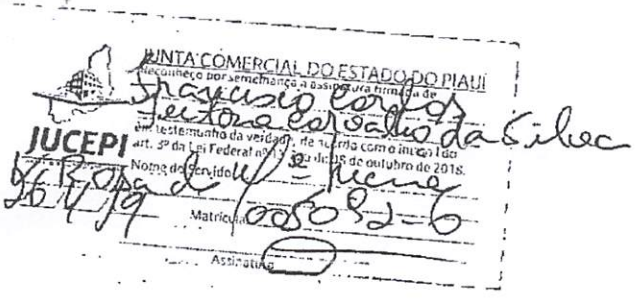 JUNTA COMERCIAL DO ESTADO DO PIAUÍ
Reconheço por semelhança a assinatura firmada de
Francisco Carlos
Feitosa Carvalho da Silva
JUCEPI
em testemunho da verdade, de acordo com o inciso I do
art. 3º da Lei Federal nº 13 de 08 de outubro de 2018.
Nome do Servidor
Rosa
Matrícula 005092-6
Assinatura